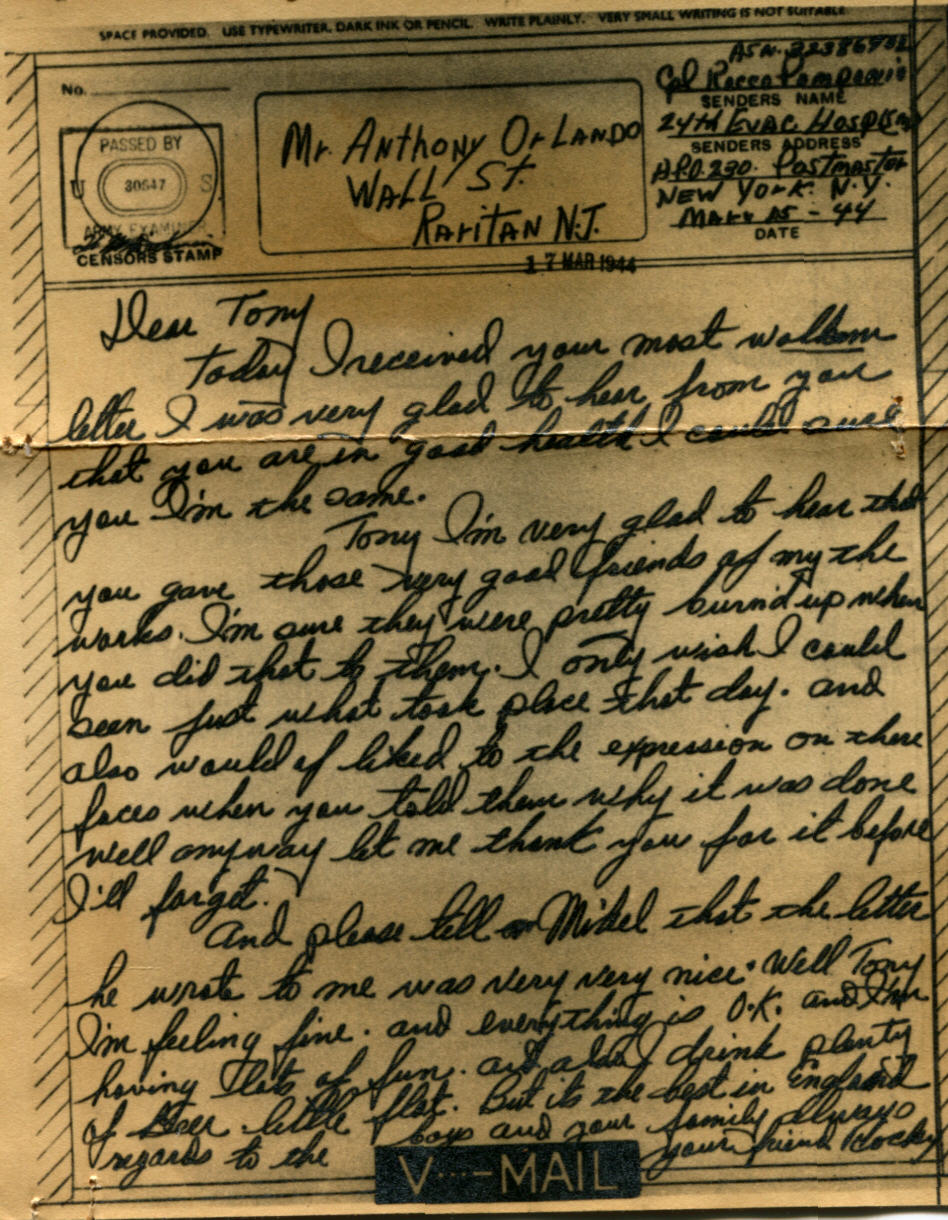 SPACE PROVIDED. USE TYPEWRITER, DARK INK OR PENCIL. WRITE PLAINLY. VERY SMALL WRITING IS NOT SUITABLE.
No.
PASSED BY
U 30647 S
ARMY EXAMINER
CENSORS STAMP
Mr. Anthony Orlando
Wall St.
Raritan N.J.
ASN.
Cpl Rocco
SENDERS NAME
24th Evac. Hospital
SENDERS ADDRESS
A.P.O. 230. Postmaster
New York. N.Y.
15 - 44
DATE
17 MAR 1944
Dear Tony
Today I received your most
letter I was very glad to hear from you
that you are in good health I could
you I'm the same.
Tony I'm very glad to hear that
you gave those very good friends of my the
works. I'm sure they were pretty burnd up when
you did that to them. I only wish I could
seen just what took place that day. and
also would of liked to the expression on there
faces when you told them why it was done
well anyway let me thank you for it before
I'll forget.
And please tell that the letter
he wrote to me was very very nice. Well Tony
I'm feeling fine. and everything is O.K. and I'm
having lots of fun. and also I drink plenty
of Beer little flat. But its the best in England
regards to the boys and your family Always
your friend Rocky
V···—MAIL